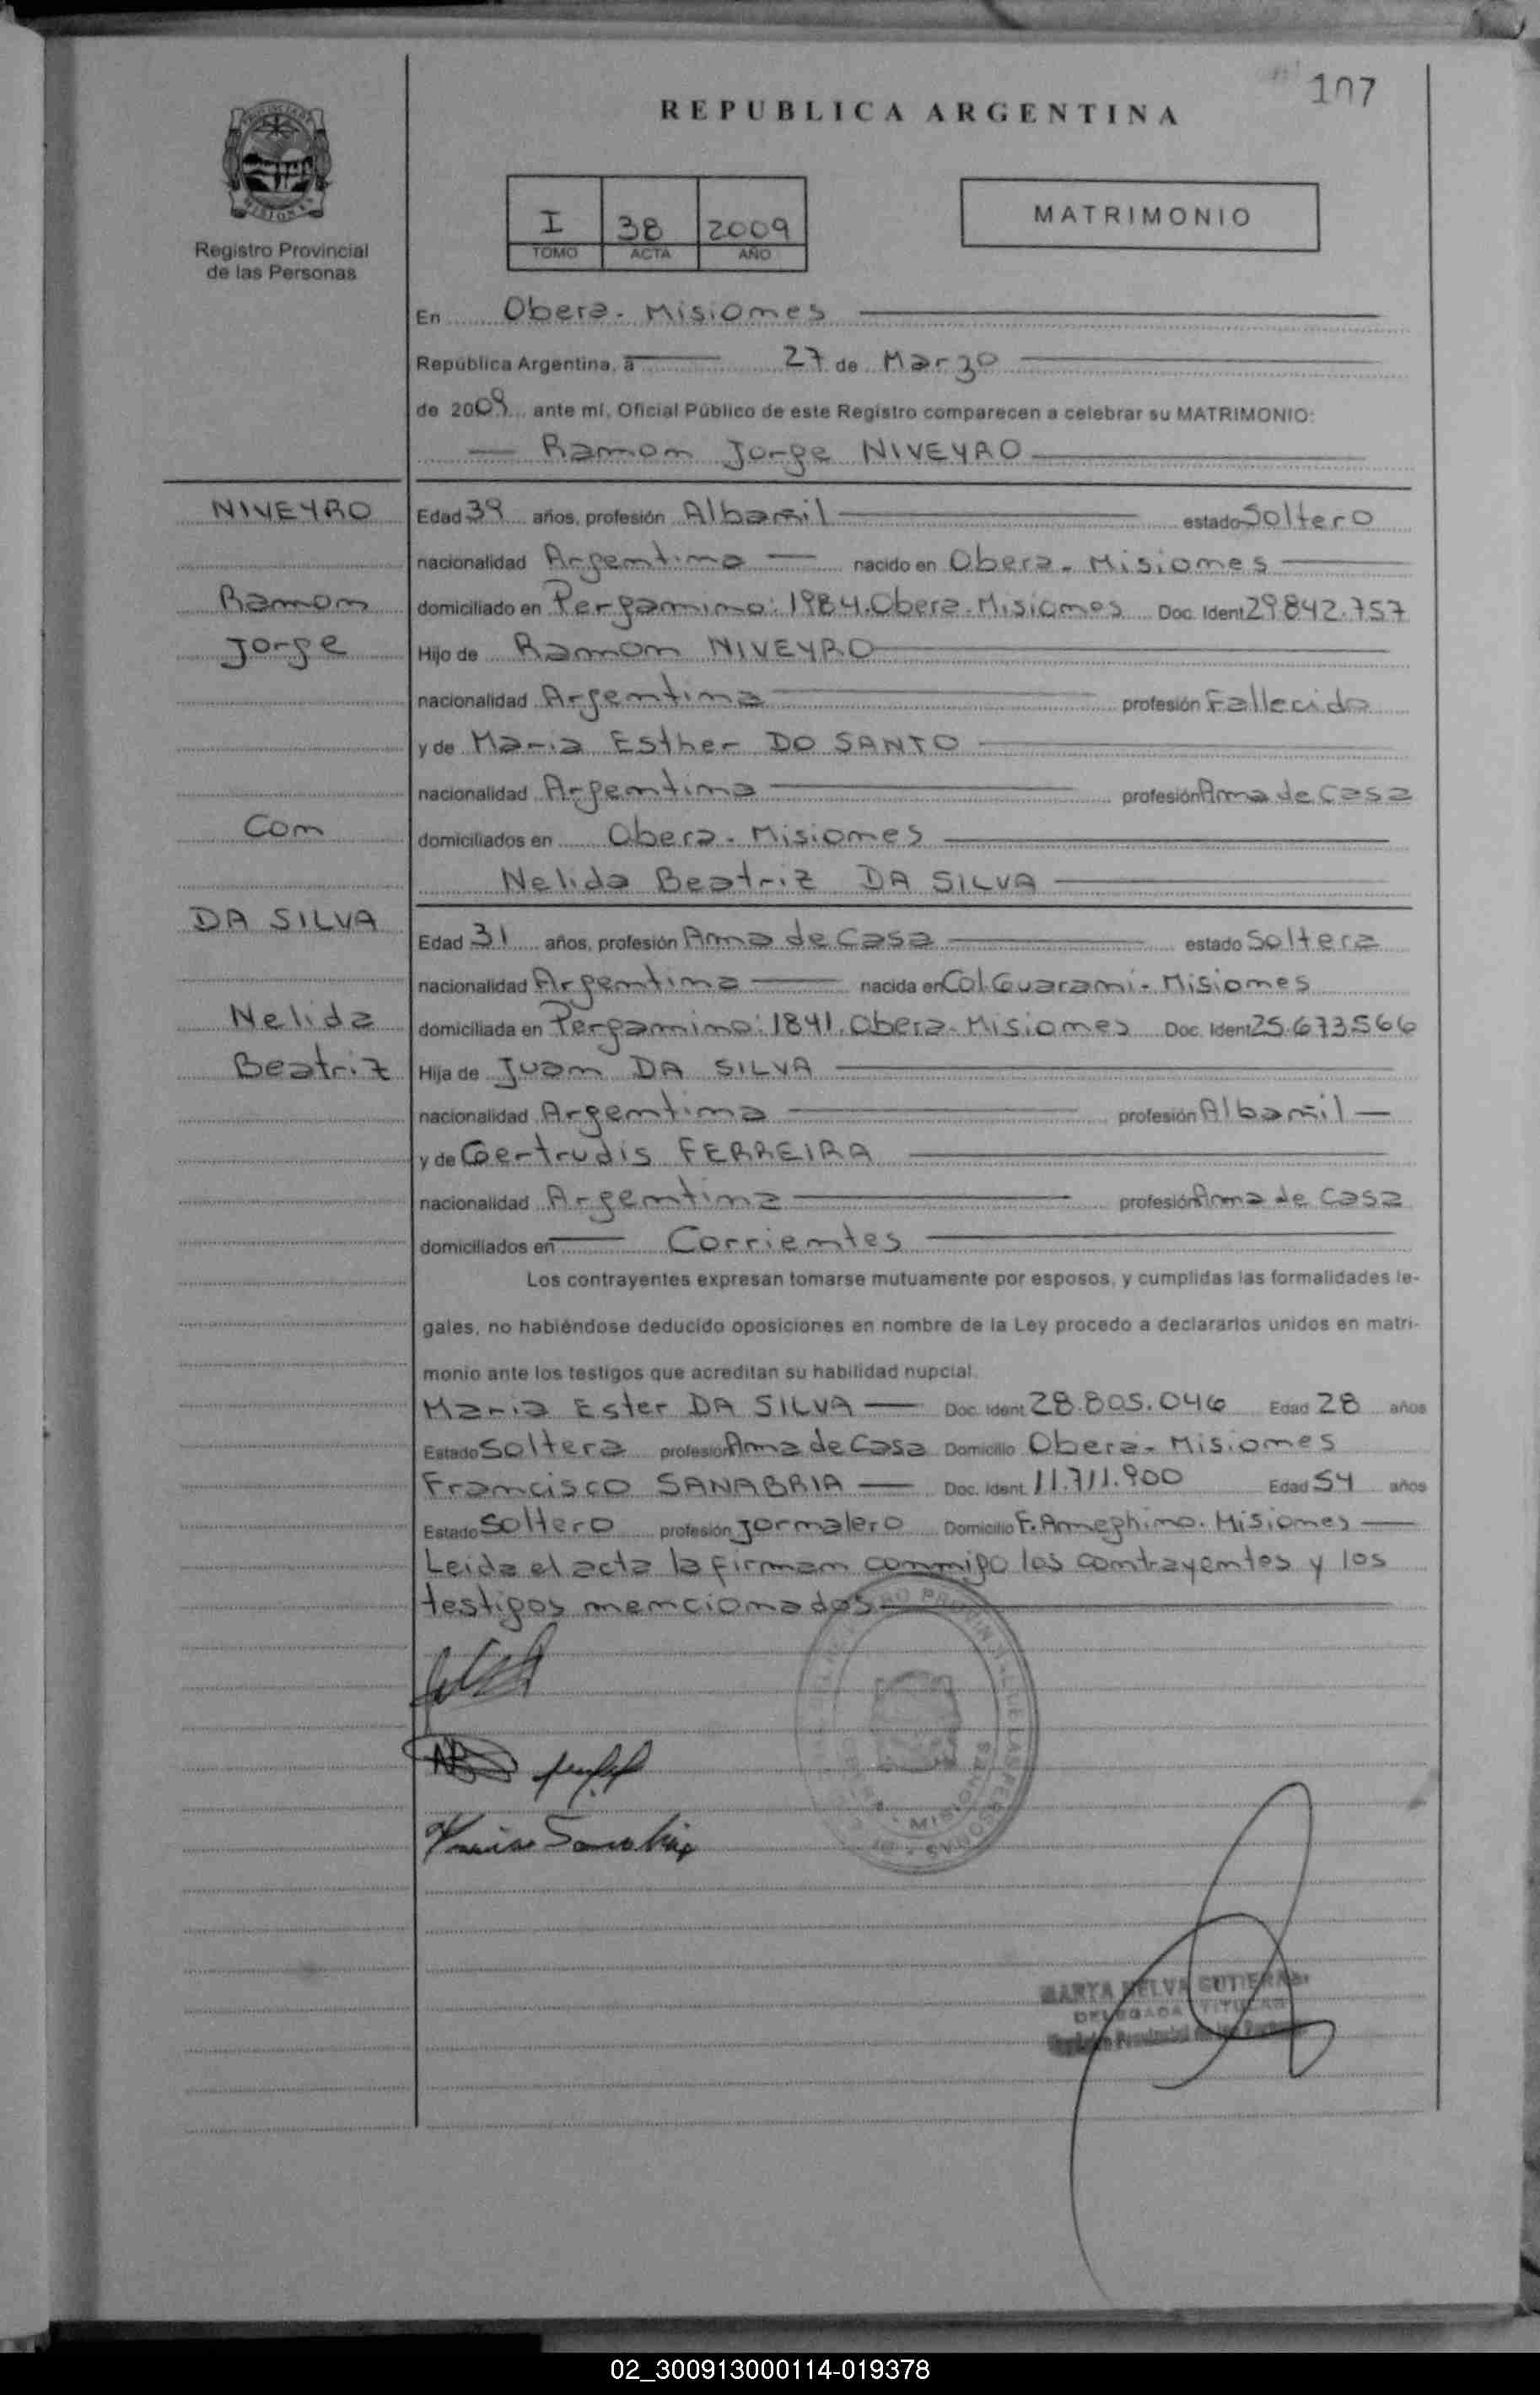 107
REPUBLICA ARGENTINA
MISIONES
Registro Provincial
de las Personas
I 38 2009
TOMO ACTA AÑO
MATRIMONIO
En Obera - Misiones
República Argentina, a 27 de Marzo
de 2009 ante mí, Oficial Público de este Registro comparecen a celebrar su MATRIMONIO:
Ramon Jorge NIVEYRO
NIVEYRO
Ramon
Jorge
Con
DA SILVA
Nelida
Beatriz
Edad 39 años, profesión Albañil estado Soltero
nacionalidad Argentino nacido en Obera - Misiones
domiciliado en Pergamino: 1984. Obera - Misiones Doc. Ident 29.842.757
Hijo de Ramon NIVEYRO
nacionalidad Argentina profesión Fallecido
y de Maria Esther DO SANTO
nacionalidad Argentina profesión Ama de Casa
domiciliados en Obera - Misiones
Nelida Beatriz DA SILVA
Edad 31 años, profesión Ama de Casa estado Soltera
nacionalidad Argentina nacida en Col Guarani - Misiones
domiciliada en Pergamino: 1841. Obera - Misiones Doc. Ident 25.673.566
Hija de Juan DA SILVA
nacionalidad Argentina profesión Albañil
y de Gertrudis FERREIRA
nacionalidad Argentina profesión Ama de Casa
domiciliados en Corrientes
Los contrayentes expresan tomarse mutuamente por esposos, y cumplidas las formalidades le-
gales, no habiéndose deducido oposiciones en nombre de la Ley procedo a declararlos unidos en matri-
monio ante los testigos que acreditan su habilidad nupcial.
Maria Ester DA SILVA Doc. Ident. 28.805.046 Edad 28 años
Estado Soltera profesión Ama de Casa Domicilio Obera - Misiones
Francisco SANABRIA Doc. Ident. 11.711.900 Edad 54 años
Estado Soltero profesión Jornalero Domicilio F. Ameghino. Misiones
Leida el acta la firman conmigo los contrayentes y los
testigos mencionados
MISIONES
MARTA NELVA GUTIERREZ
DELEGADA TITULAR
Registro Provincial de las Personas
02_300913000114-019378